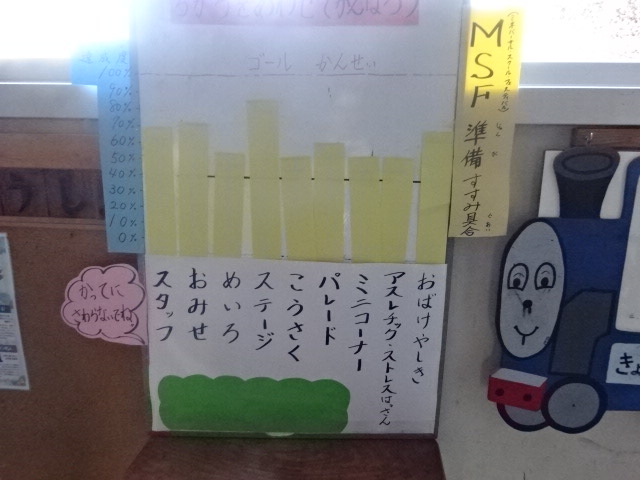 ゴール かんせい
100%
90%
80%
70%
60%
50%
40%
30%
20%
10%
0%
MSF
準備すすみ具合
じゅんび
ぐあい
おばけやしき
アスレチック・ストレスはっさん
ミニコーナー
パレード
こうさく
ステージ
めいろ
おみせ
スタッフ
かってに
さわらないでね